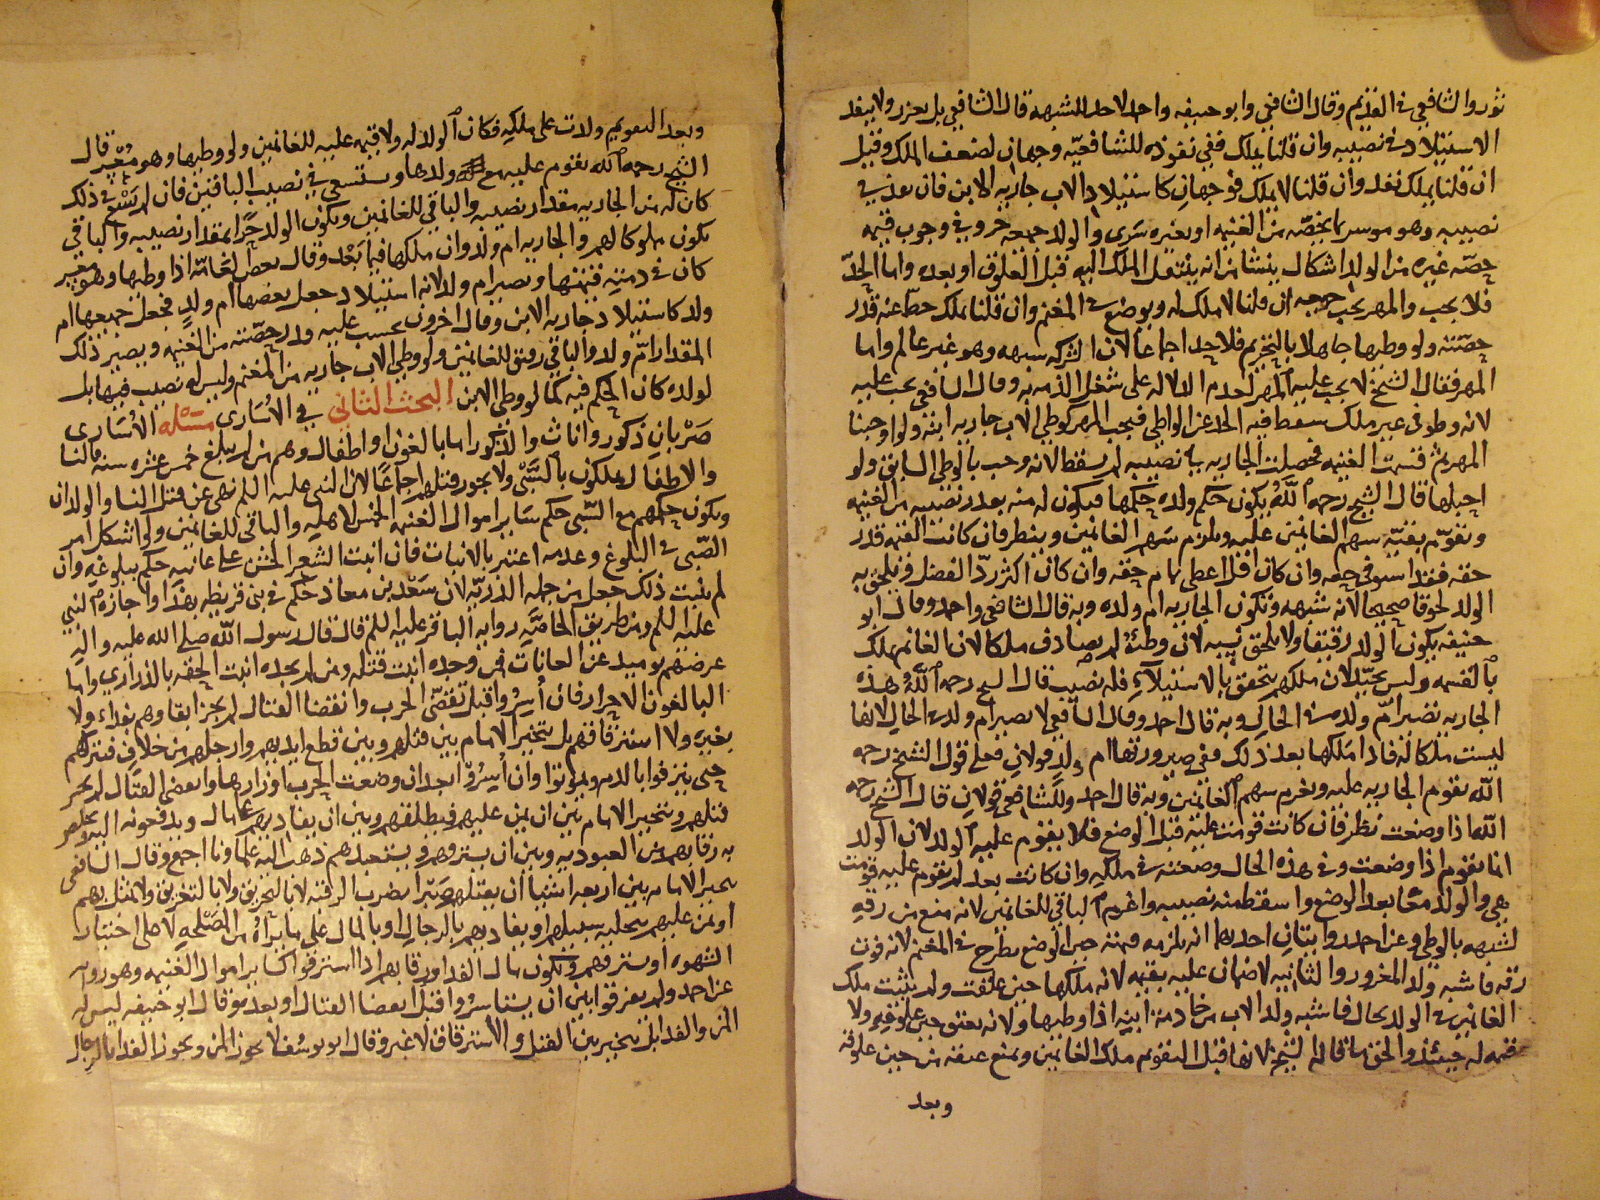 ثور والشافعي في القديم وقال الشافعي وابو حنيفه واحد لا حد للشبهة قال الشافعي بل يعزر ولا ينفذ
الاستيلاد في نصيبه وان قلنا يملك ففي نفوذه للشافعيه وجهان لضعف الملك وقيل
ان قلنا يملك نفذ وان قلنا لا يملك فوجهان كاستيلاد الاب جاريه الابن فان نفذ في
نصيبه وهو موسر بما يخصه من الغنيه او بغيره سري والولد جميعه حر وفي وجوب قيمه
حصه غيره من الولد اشكال ينشا من انه ينتقل الملك اليه قبل العلوق او بعده واما الحد
فلا يجب والمهر يجب جميعه ان قلنا لا ملك له ويوضع في المغنم وان قلنا يملك حط عنه قدر
حصته ولو وطيها جاهلا بالتحريم فلا حد اجماعا لان الشركه شبهه وهو غير عالم واما
المهر فقال الشيخ لا يجب عليه المهر لعدم الدلاله على شغل الذمه به وقال الشافعي يجب عليه
لانه وطو في غير ملك سقط فيه الحد عن الواطي فيجب المهر كوطي الاب جاريه ابنه ولو اوجبنا
المهر ثم قسمت الغنيه فحصلت الجاريه في نصيبه لم يسقط لانه وجب بالوطي السابق ولو
احبلها قال الشيخ رحمه الله يكون حكم ولده حكمها فيكون له منه بقدر نصيبه من الغنيه
ويقوم بقيه سهم الغانمين عليه ويلزم سهم الغانمين وينظر فان كانت القيمه قدر
حقه فقد استوفى حقه وان كان اقل اعطي تمام حقه وان كان اكثر رد الفضل ويلحق به
الولد لحوقا صحيحا لانه شبهه وتكون الجاريه ام ولده وبه قال الشافعي واحمد وقال ابو
حنيفه يكون الولد رقيقا ولا يلحق نسبه لان وطئه لم يصادف ملكا لان الغانم يملك
بالقسمه وليس بجيد لان ملكهم يتحقق بالاستيلاء فله نصيب قال الشيخ رحمه الله هذه
الجاريه تصير ام ولد في الحال وبه قال احمد وقال الشافعي لا تصير ام ولد في الحال لانها
ليست ملكا له فاذا ملكها بعد ذلك ففي صيرورتها ام ولد قولان فعلى قول الشيخ رحمه
الله تقوم الجاريه عليه ويغرم سهم الغانمين وبه قال احمد وللشافعي قولان قال الشيخ رحمه
الله اذا وضعت نظر فان كانت قومت عليه قبل الوضع فلا يقوم عليه الولد لان الولد
انما يقوم اذا وضعت وفي هذه الحال وضعته في ملكه وان كانت بعد لم تقوم عليه قومت
هي والولد معا بعد الوضع واسقط منه نصيبه واغرم الباقي للغانمين لانه منع من رقه
لشبهه بالوطي وعن احمد روايتان احديهما انه يلزمه قيمته حين الوضع تطرح في المغنم لانه فوت
رقه فاشبه ولد المغرور والثانيه لا ضمان عليه بقيمه لانه ملكها حين علقت ولم يثبت ملك
الغانمين في الولد بحال فاشبه ولد الاب من خادمة ابنه اذا وطيها ولانه يعتق حين علوقه ولا
قيمه له حينئذ والحق ما قاله الشيخ لانها قبل التقويم ملك الغانمين ويمنع عتقه من حين علوقه
وبعد
وبعد التقويم ولدت على ملكه فكان الولد له ولا قيمه عليه للغانمين ولو وطيها وهو معسر قال
الشيخ رحمه الله تقوم عليه مع ولدها ويستسعى في نصيب الباقين فان لم يسع في ذلك
كان له من الجاريه مقدار نصيبه والباقي للغانمين ويكون الولد حرا بمقدار نصيبه والباقي
يكون مملوكا لهم والجاريه ام ولد وان ملكها فيما بعد وقال بعض العامه اذا وطيها وهو معسر
كان في ذمته قيمتها وتصير ام ولد لانه استيلاد جعل بعضها ام ولد فجعل جميعها ام
ولد كاستيلاد جاريه الابن وقال اخرون يحسب عليه قدر حصته من الغنيه ويصير ذلك
المقدار ام ولد والباقي رقيق للغانمين ولو وطي الاب جاريه من المغنم وليس له نصيب فيها بل
لولده كان الحكم فيه كما لو وطي الابن البحث الثاني في الاسارى مسئله الاسارى
ضربان ذكور واناث والذكور اما بالغون او اطفال وهم من لم يبلغ خمس عشره سنه فالنسا
والاطفال يملكون بالسبي ولا يجوز قتلهم اجماعا لان النبي عليه السلم نهى عن قتل النسا والولدان
ويكون حكمهم مع السبي حكم ساير اموال الغنيه الخمس لاهله والباقي للغانمين ولو اشكل امر
الصبي في البلوغ وعدمه اعتبر بالانبات فان انبت الشعر الخشن على عانته حكم ببلوغه وان
لم ينبت ذلك جعل من جمله الذريه لان سعد بن معاذ حكم في بني قريظه بهذا واجازه النبي
عليه السلم ومن طريق الخاصه روايه الباقر عليه السلم قال قال رسول الله صلى الله عليه واله
عرضهم يوميذ عن العانات فمن وجده انبت قتله ومن لم يجده انبت الحقه بالذراري واما
البالغون الاحرار فان اسروا قبل تقضي الحرب وانقضا القتال لم يجز ابقاوهم بفداء ولا
بغيره ولا استرقاقهم بل يتخير الامام بين قتلهم وبين قطع ايديهم وارجلهم من خلاف فيتركهم
حتى ينزفوا بالدم ويموتوا وان اسروا بعد ان وضعت الحرب اوزارها وانقضى القتال لم يجز
قتلهم ويتخير الامام بين ان يمن عليهم فيطلقهم وبين ان يفاديهم على مال ويدفعونه اليه ويخلص
به رقابهم من العبوديه وبين ان يسترقهم ويستعبدهم ذهب اليه علماونا اجمع وقال الشافعي
يتخير الامام بين اربعه اشيا ان يقتلهم صبرا بضرب الرقبه لا بالتحريق ولا بالتغريق ولا يمثل بهم
او يمن عليهم بتخليه سبيلهم او يفاديهم بالرجال او بالمال على ما يراه من المصلحه لا على اختيار
الشهوه او يسترقهم ويكون مال الفدا ورقابهم اذا استرقوا كساير اموال الغنيه وهو روايه
عن احمد ولم يفرقوا بين ان يستاسروا قبل انقضا القتال او بعده وقال ابو حنيفه ليس له
المن والفدا بل يتخير بين القتل والاسترقاق لا غير وقال ابو يوسف لا يجوز المن ويجوز الفدا بالرجال